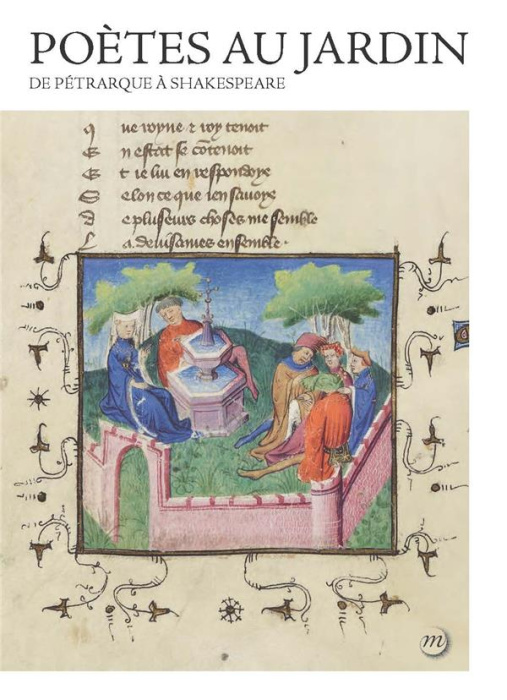 POÈTES AU JARDIN
DE PÉTRARQUE À SHAKESPEARE
q ue royne & roy tenoit
E n estat se cōtenoit
E t ie lui en respondoye
S elon ce que ien sauoye
d e plusieurs choses me semble
L a deuisames ensemble.
m